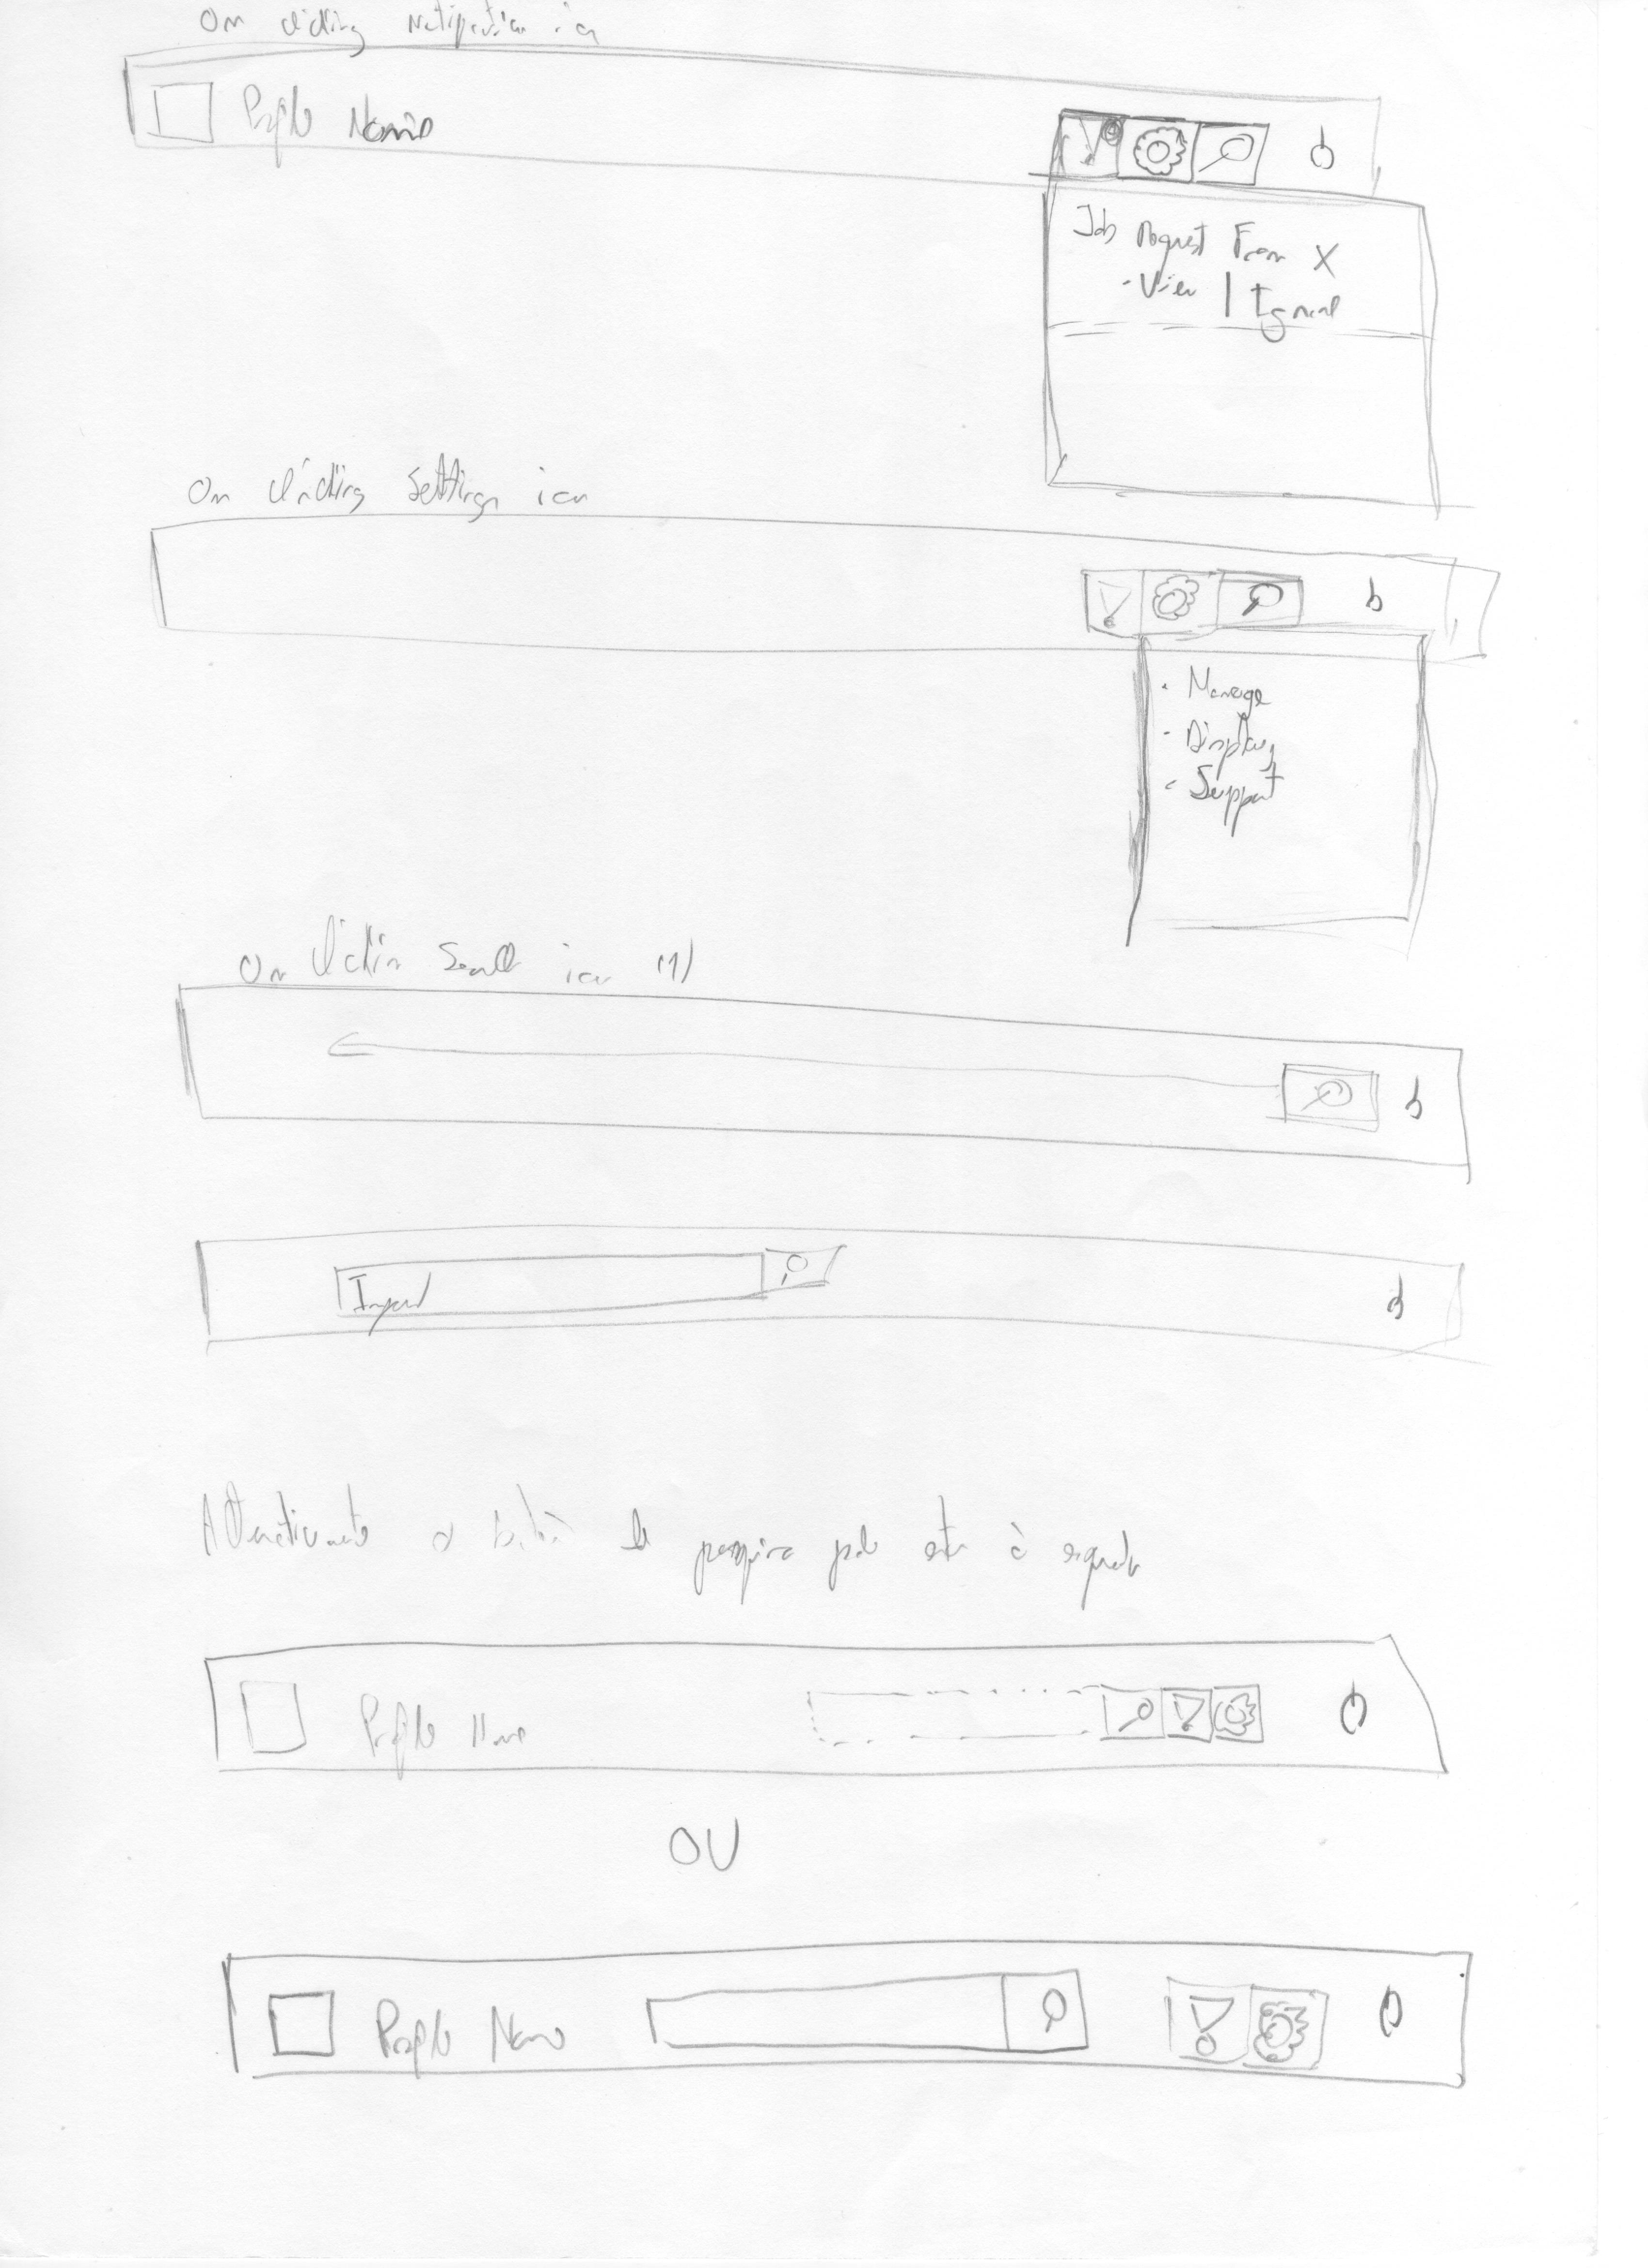 On clicking notification icon
Profile Name
Job request From X
- View | Ignore
On clicking Settings icon
- Manage
- Display
- Support
On clickin Search icon (1)
Input
Alternativamente o botão de pesquisa pode estar à esquerda
Profile Name
OU
Profile Name